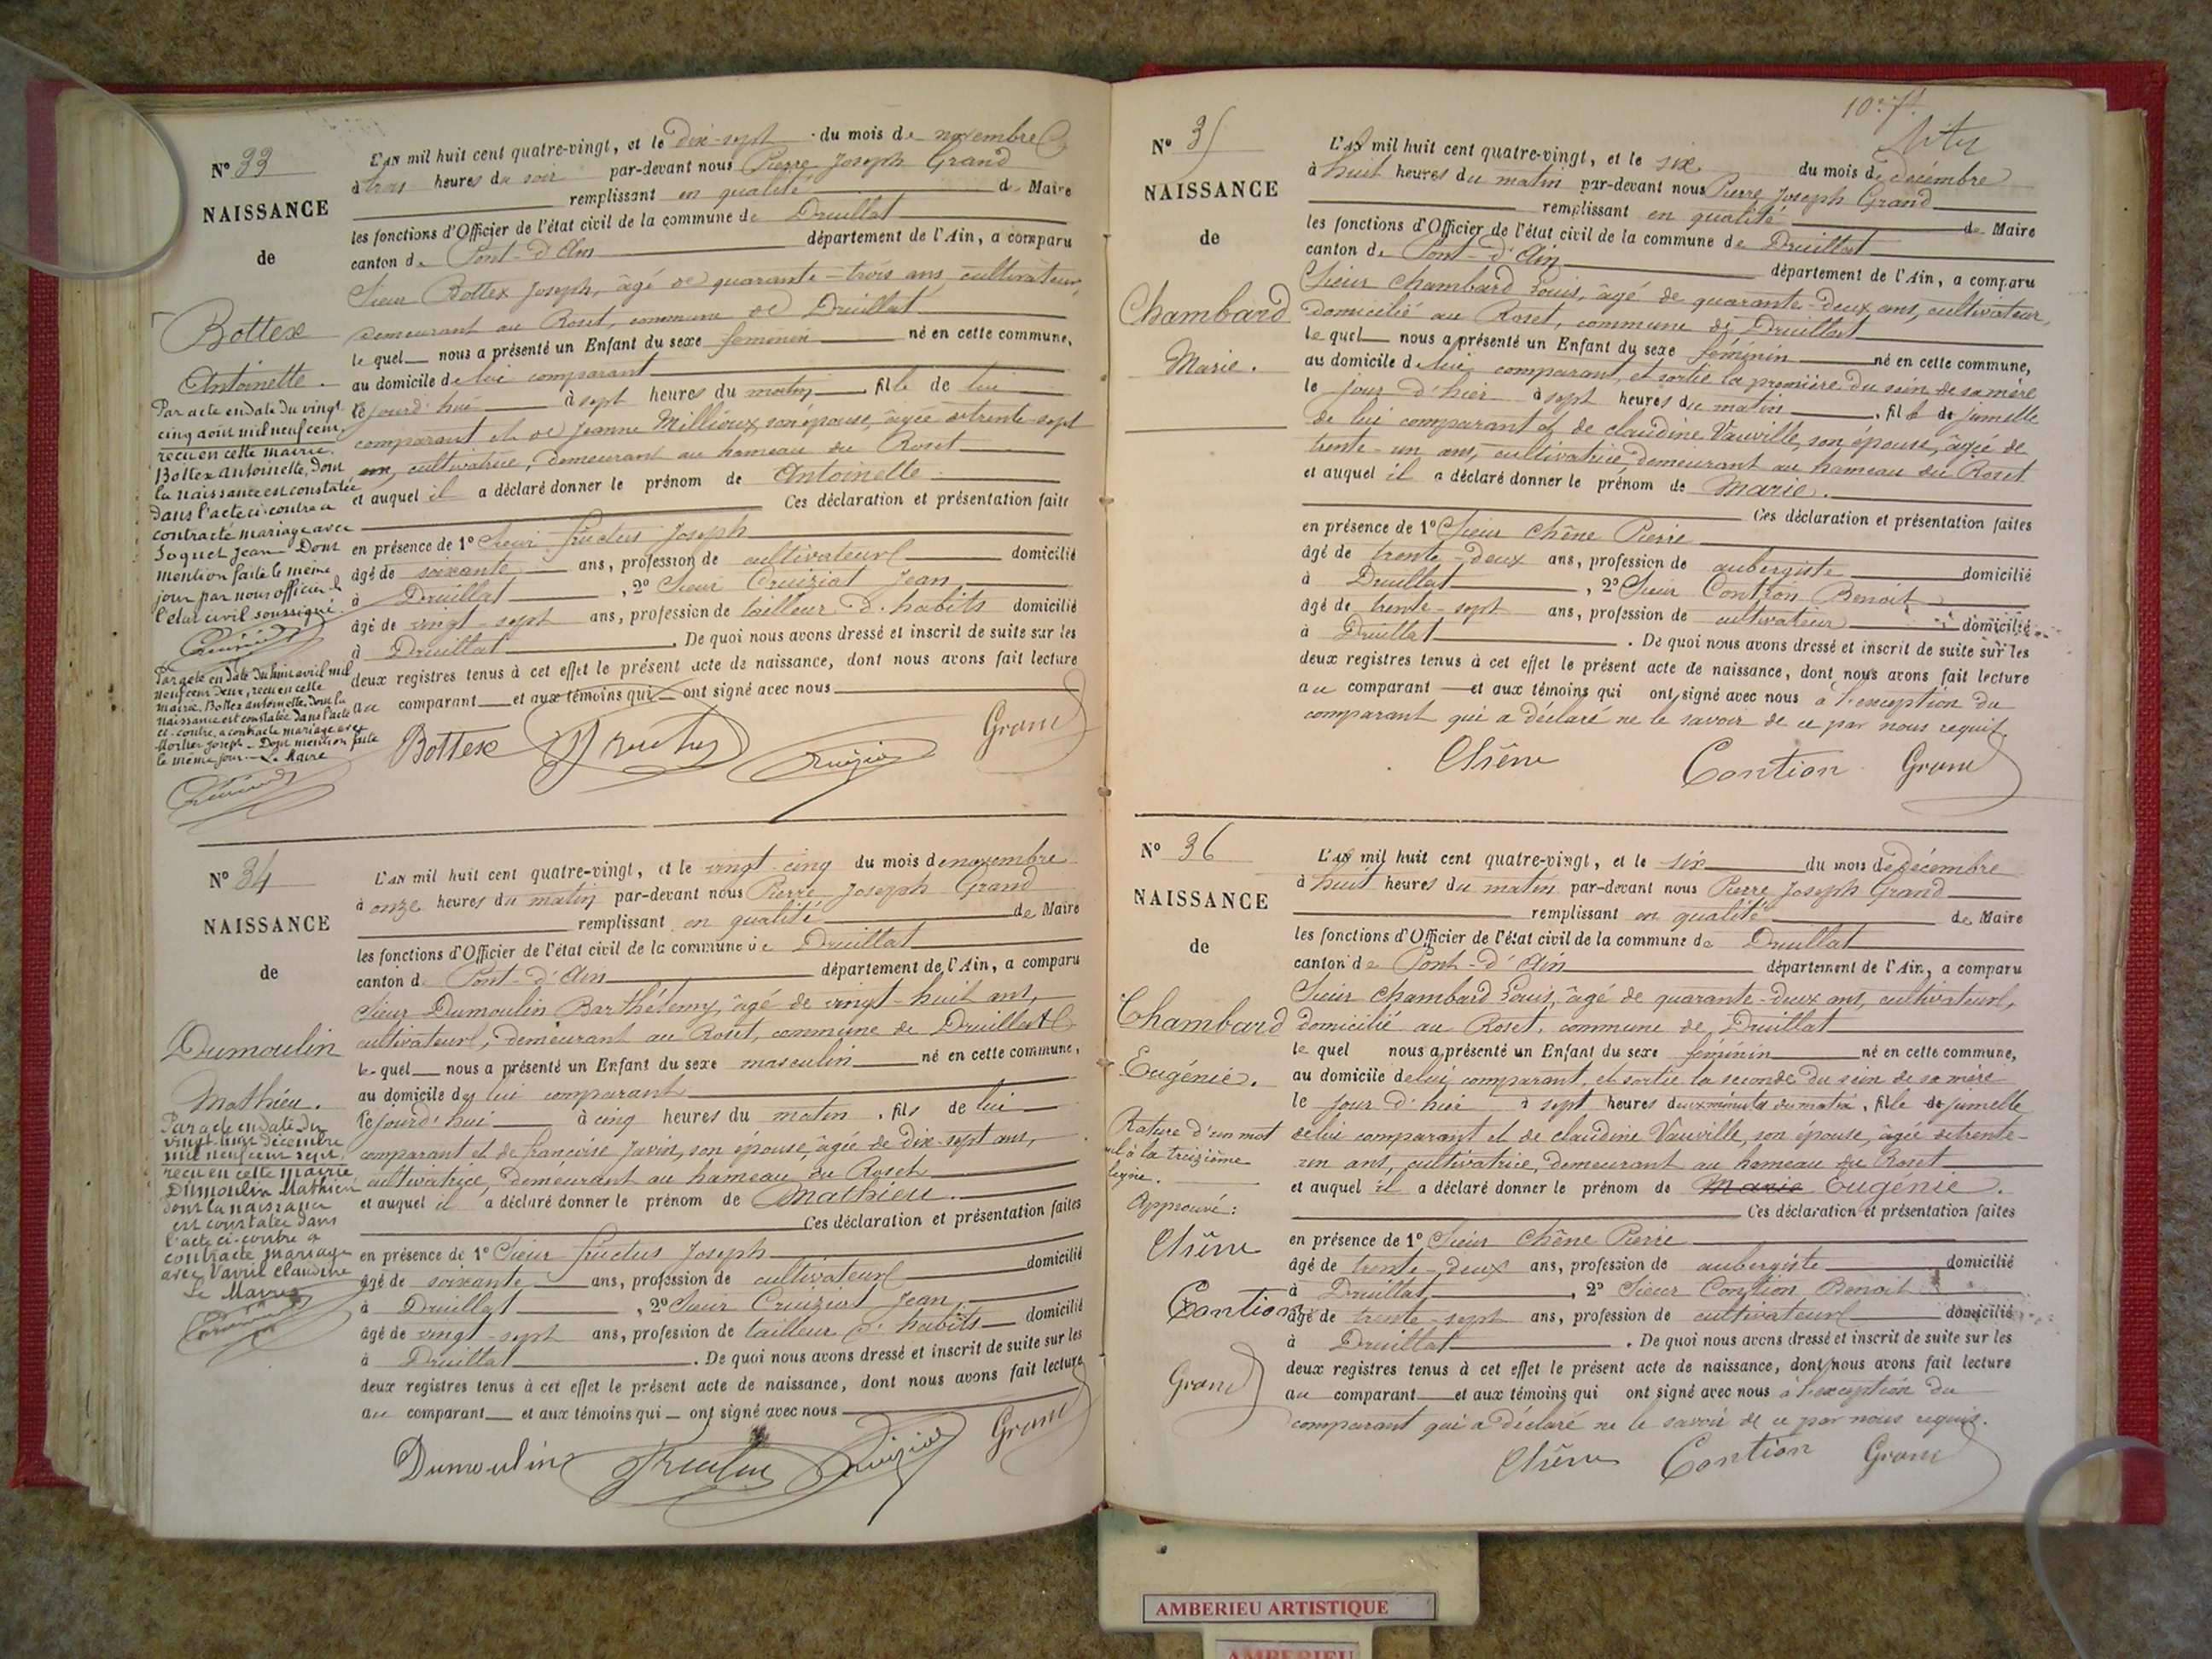 Nº 33
NAISSANCE
de
Bottex
Antoinette.
Par acte en date du vingt
cinq août mil neuf cent
reçu en cette mairie.
Bottex Antoinette, dont
la naissance est constatée
dans l'acte ci-contre a
contracté mariage avec
Joquet Jean Dont
mention faite le même
jour par nous officier de
l'état civil soussigné.
Par acte en date du huit avril mil
neuf cent deux, reçu en cette
mairie, Bottex Antoinette, dont la
naissance est constatée dans l'acte
ci-contre, a contracté mariage avec
Mortier Joseph - Dont mention faite
le même jour. - Le Maire
L'AN mil huit cent quatre-vingt, et le dix-sept du mois de novembre
à trois heures du soir par-devant nous Pierre Joseph Grand
remplissant en qualité de Maire
les fonctions d'Officier de l'état civil de la commune de Druillat
canton de Pont-d'Ain département de l'Ain, a comparu
Sieur Bottex Joseph, âgé de quarante-trois ans, cultivateur,
demeurant au Roset, commune de Druillat
lequel nous a présenté un Enfant du sexe féminin né en cette commune,
au domicile de lui comparant
le jourd'hui à sept heures du matin, fille de lui
comparant et de Jeanne Millioux, son épouse, âgée de trente-sept
ans, cultivatrice, demeurant au hameau du Roset
et auquel il a déclaré donner le prénom de Antoinette
Ces déclaration et présentation faites
en présence de 1º Sieur Fructus Joseph
âgé de soixante ans, profession de cultivateur domicilié
à Druillat, 2º Sieur Cruiziat Jean
âgé de vingt-sept ans, profession de tailleur d'habits domicilié
à Druillat. De quoi nous avons dressé et inscrit de suite sur les
deux registres tenus à cet effet le présent acte de naissance, dont nous avons fait lecture
au comparant et aux témoins qui ont signé avec nous
Bottex Fructus Cruiziat Grand
Nº 34
NAISSANCE
de
Dumoulin
Mathieu.
Par acte en date du
vingt huit décembre
mil neuf cent sept.
reçu en cette mairie
Dumoulin Mathieu
dont la naissance
est constatée dans
l'acte ci-contre a
contracté mariage
avec Vavril Claudine
Le Maire
L'AN mil huit cent quatre-vingt, et le vingt-cinq du mois de novembre
à onze heures du matin par-devant nous Pierre Joseph Grand
remplissant en qualité de Maire
les fonctions d'Officier de l'état civil de la commune de Druillat
canton de Pont-d'Ain département de l'Ain, a comparu
Sieur Dumoulin Barthélemy, âgé de vingt-huit ans,
cultivateur, demeurant au Roset, commune de Druillat
lequel nous a présenté un Enfant du sexe masculin né en cette commune,
au domicile de lui comparant
le jourd'hui à cinq heures du matin, fils de lui
comparant et de françoise Javin, son épouse, âgée de dix-sept ans,
cultivatrice, demeurant au hameau du Roset
et auquel il a déclaré donner le prénom de Mathieu.
Ces déclaration et présentation faites
en présence de 1º Sieur Fructus Joseph
âgé de soixante ans, profession de cultivateur domicilié
à Druillat, 2º Sieur Cruiziat Jean
âgé de vingt-sept ans, profession de tailleur d'habits domicilié
à Druillat. De quoi nous avons dressé et inscrit de suite sur les
deux registres tenus à cet effet le présent acte de naissance, dont nous avons fait lecture
au comparant et aux témoins qui ont signé avec nous
Dumoulin Fructus Cruiziat Grand
Nº 35
NAISSANCE
de
Chambard
Marie.
L'AN mil huit cent quatre-vingt, et le six du mois de décembre
à huit heures du matin par-devant nous Pierre Joseph Grand
remplissant en qualité de Maire
les fonctions d'Officier de l'état civil de la commune de Druillat
canton de Pont-d'Ain département de l'Ain, a comparu
Sieur Chambard Louis, âgé de quarante-deux ans, cultivateur,
domicilié au Roset, commune de Druillat
lequel nous a présenté un Enfant du sexe féminin né en cette commune,
au domicile de lui comparant, et sortie la première du sein de sa mère
le jour d'hier à sept heures du matin, fille de jumelle
de lui comparant et de Claudine Vauville, son épouse, âgée de
trente-un ans, cultivatrice, demeurant au hameau du Roset
et auquel il a déclaré donner le prénom de Marie.
Ces déclaration et présentation faites
en présence de 1º Sieur Chêne Pierre
âgé de trente-deux ans, profession de aubergiste domicilié
à Druillat, 2º Sieur Contion Benoit
âgé de trente-sept ans, profession de cultivateur domicilié
à Druillat. De quoi nous avons dressé et inscrit de suite sur les
deux registres tenus à cet effet le présent acte de naissance, dont nous avons fait lecture
au comparant et aux témoins qui ont signé avec nous à l'exception du
comparant qui a déclaré ne le savoir de ce par nous requis.
Chêne Contion Grand
Nº 36
NAISSANCE
de
Chambard
Eugénie.
Rature d'un mot
nul à la treizième
ligne.
Approuvé:
Chêne
Contion
Grand
L'AN mil huit cent quatre-vingt, et le six du mois de décembre
à huit heures du matin par-devant nous Pierre Joseph Grand
remplissant en qualité de Maire
les fonctions d'Officier de l'état civil de la commune de Druillat
canton de Pont-d'Ain département de l'Ain, a comparu
Sieur Chambard Louis, âgé de quarante-deux ans, cultivateur,
domicilié au Roset, commune de Druillat
lequel nous a présenté un Enfant du sexe féminin né en cette commune,
au domicile de lui comparant, et sortie la seconde du sein de sa mère
le jour d'hier à sept heures deux minutes du matin, fille de jumelle
de lui comparant et de Claudine Vauville, son épouse, âgée de trente-
un ans, cultivatrice, demeurant au hameau du Roset
et auquel il a déclaré donner le prénom de Marie Eugénie.
Ces déclaration et présentation faites
en présence de 1º Sieur Chêne Pierre
âgé de trente-deux ans, profession de aubergiste domicilié
à Druillat, 2º Sieur Contion Benoit
âgé de trente-sept ans, profession de cultivateur domicilié
à Druillat. De quoi nous avons dressé et inscrit de suite sur les
deux registres tenus à cet effet le présent acte de naissance, dont nous avons fait lecture
au comparant et aux témoins qui ont signé avec nous à l'exception du
comparant qui a déclaré ne le savoir de ce par nous requis.
Chêne Contion Grand
AMBERIEU ARTISTIQUE
AMBERIEU